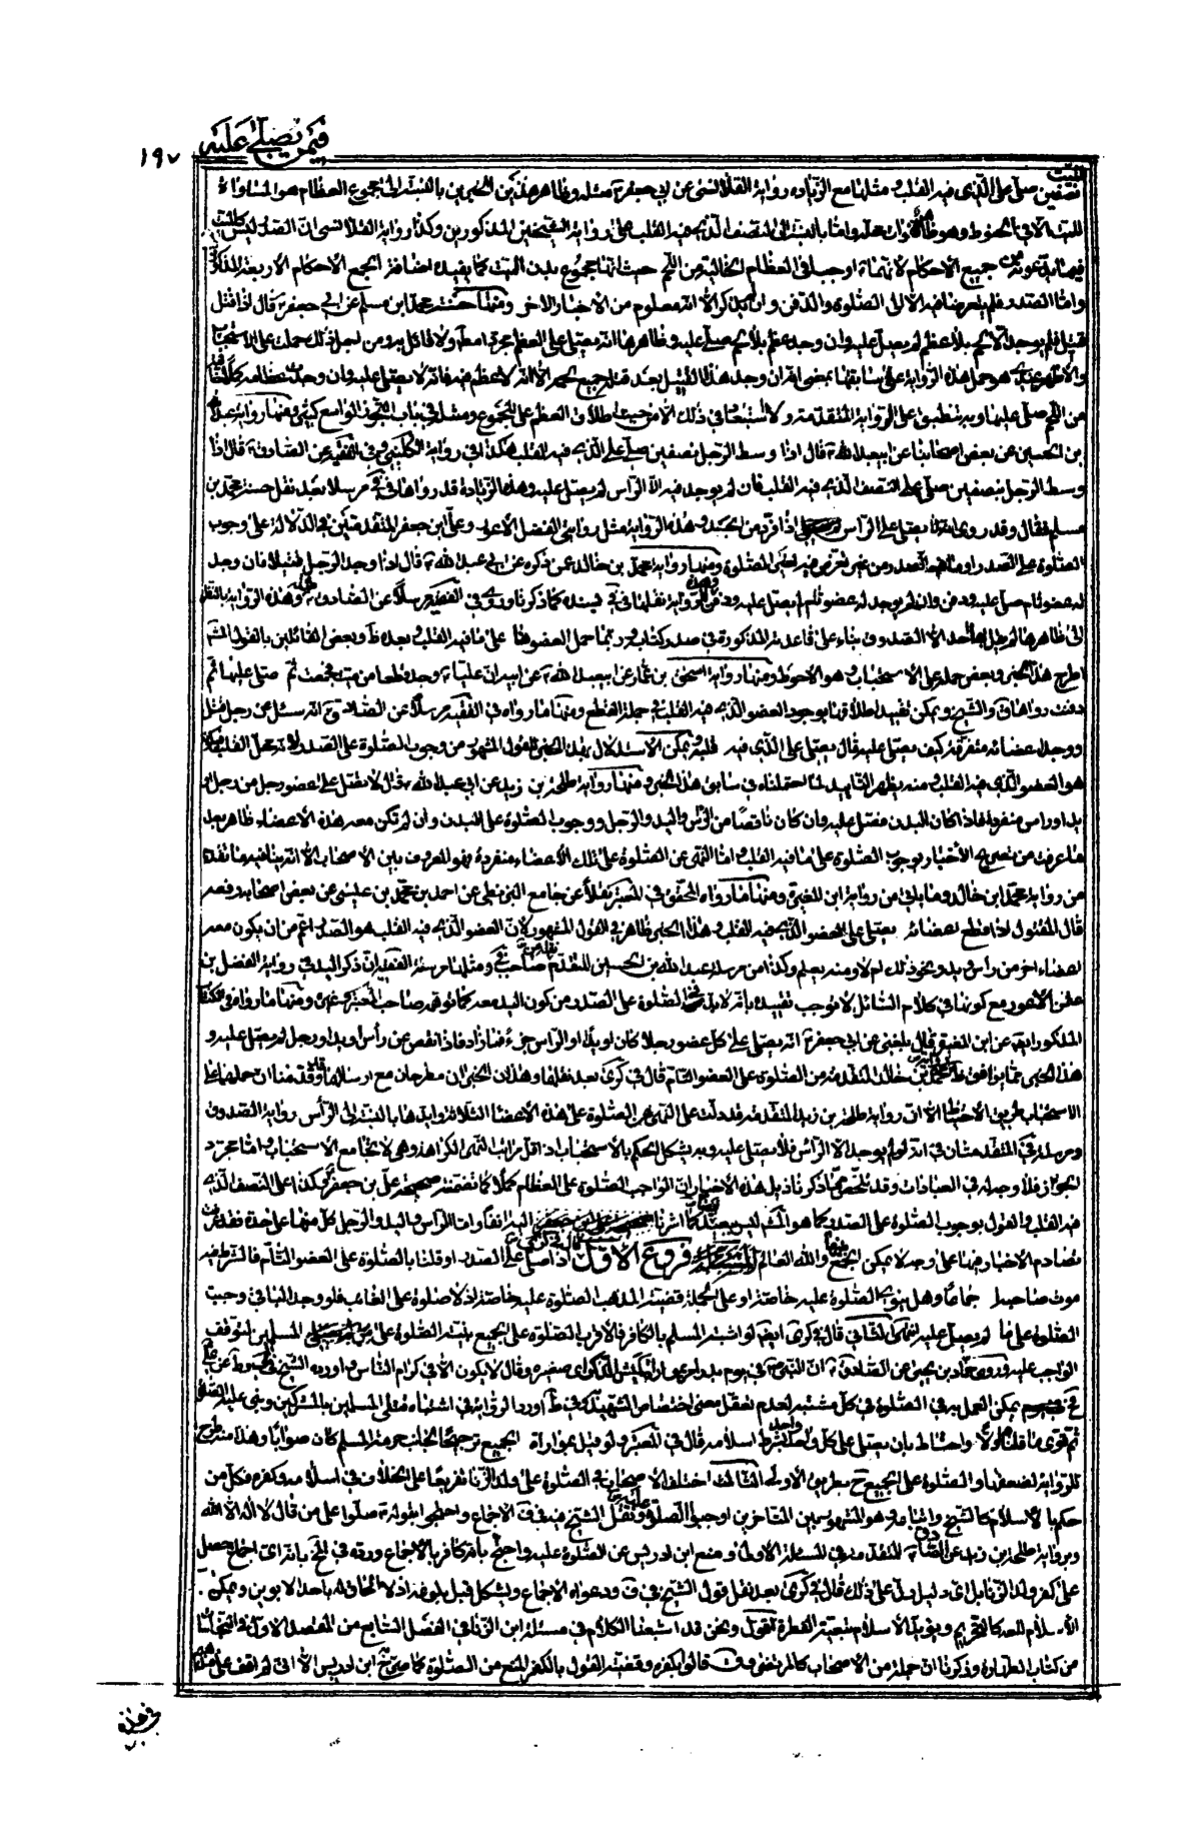 فيمن يصلى عليه
١٩٧
نصفين صلى على الذى فيه القلب و مثلها مع الزيادة رواية القلانسى عن ابى جعفر و ظاهر هذين الخبرين بالنسبة الى مجموع العظام هو المساواة
للميت الا فى الحنوط و هو ظاهر و اما بالنسبة الى النصف الذى فيه القلب على رواية الشيخين المذكورين و كذا رواية القلانسى ان الصدر ليس كالميت
جميع الاحكام لانهما اوجبا فى العظام الخالية من اللحم حيث انها مجموع بدن الميت كما يفيده اضافة الجمع الاحكام الاربعة المذكورة
و اما الصدر فلم يعرضا فيه الا الى الصلوة و الدفن و ان كان ذكر الاثر معلوم من الاخبار الاخر و منها حسنة محمد بن مسلم عن ابى جعفر قال اذا قتل
قتيل فلم يوجد الا لحم بلا عظم لم يصل عليه و ان وجد عظم بلا لحم صلى عليه و ظاهرها انه يصلى على العظم و لا قائل به و من اجل ذلك حملت على الاستحباب
و الاظهر عندى هو حمل هذه الرواية على سابقتها بمعنى ان وجد هذا القتيل بعد جميع لحمه الا انه لا عظم فيه فانه لا يصلى عليه و ان وجدت عظامه كملا خالية
من اللحم صلى عليها و به تنطبق على الرواية المتقدمة و لا استبعاد فى ذلك الا من حيث اطلاق العظم على المجموع و مثله فى باب التجوز الواسع كثير و منها رواية عبد الله
بن الحسين عن بعض اصحابنا عن ابى عبد الله قال اذا وسط الرجل نصفين صلى على الذى فيه القلب هكذا فى رواية الكلينى و فى الفقيه عن الصادق قال اذا
وسط الرجل بنصفين صلى على النصف الذى فيه القلب فان لم يوجد فيه الا الراس لم يصل عليه و هذه الزيادة قد رواها فى مرسلا بعد نقل حسنة محمد بن
مسلم فقال و قد روى انه لا يصلى على الراس اذا افرد من الجسد و هذه الرواية مثل رواية الفضل الاعور و على بن جعفر المتقدمتين فى الدلالة على وجوب
الصلوة على الصدر او ما فيه الصدر من غير تعرض فيه لغير الصلوة و منها رواية محمد بن خالد عمن ذكره عن ابى عبد الله قال اذا وجد الرجل قتيلا فان وجد
له عضو تام صلى عليه و دفن و ان لم يوجد له عضو تام لم يصل عليه و دفن و هذه الرواية نقلها فى كما ذكرنا و روى فى الفقيه مرسلا عن الصادق و هذه الرواية بالنظر
الى ظاهرها لم يعمل بها احد الا الصدوق بناء على قاعدته المذكورة فى صدر كتابه و ربما حمل العضو هنا على ما فيه القلب و بعده ظاهر و بعض القائلين بالقول المشهور
اطرح هذا الخبر و بعض حمله على الاستحباب و هو الاحوط و منها رواية اسحق بن عمار عن ابى عبد الله عن ابيه ان عليا وجد قطعا من ميت فجمعت ثم صلى عليها ثم
دفنت رواها فى و الشيخ و يمكن تقييد اطلاقها بوجود العضو الذى فيه القلب فى جملة القطع و منها ما رواه فى الفقيه مرسلا عن الصادق انه سئل عن رجل قتل
و وجد اعضائه متفرقة كيف يصلى عليه قال يصلى على الذى فيه قلبه و يمكن الاستدلال بهذا الخبر للقول المشهور من وجوب الصلوة على الصدر لانه محل القلب
هو العضو الذى فيه القلب و منه يظهر التاييد لما احتملناه فى سابق هذا الخبر و منها رواية طلحة بن زيد عن ابى عبد الله قال لا تصل على عضو رجل من رجل او
يد او راس منفردا فاذا كان البدن فصل عليه و ان كان ناقصا من الراس و اليد و الرجل و وجوب الصلوة على البدن و ان لم تكن معه هذه الاعضاء ظاهر بعد
ما عرفت من تصريح الاخبار بوجوب الصلوة على ما فيه القلب و اما النهى عن الصلوة على تلك الاعضاء منفردة فهو المعروف بين الاصحاب الا انه ينافيه ما تقدم
من رواية محمد بن خالد و ما ياتى من رواية ابن المغيرة و منها ما رواه المحقق فى المعتبر نقلا عن جامع البزنطى عن احمد بن محمد بن عيسى عن بعض اصحابه رفعه
قال المقتول اذا قطع بعضائه يصلى على العضو الذى فيه القلب و هذا الخبر ظاهر فى القول المشهور لان العضو الذى فيه القلب هو الصدر اعم من ان يكون معه
اعضاء اخر من راس و يد و نحو ذلك ام لا و منه يعلم و كذا من مرسلة عبد الله بن الحسين المتقدم و مثلها مرسلة الفقيه ان ذكر اليد فى رواية الفضل بن
عثمن الاعور مع كونها فى كلام السائل لا يوجب تقييدا بانه لا بد فى الصلوة على الصدر من كون اليد معه كما توهمه صاحب المعتبر و غيره و منها ما رواه فى الكتاب
المذكور ايضا عن ابن المغيرة قال بلغنى عن ابى جعفر انه يصلى على كل عضو رجلا كان او يدا او الراس جزء فما زاد فاذا نقص عن راس او يد او رجل لم يصل عليه و
هذا الخبر مما يوافق ظاهر خبر محمد بن خالد المتقدم من الصلوة على العضو التام قال فى كرى بعد نقلها و هذان الخبران مطرحان مع ارسالهما و قد قدمنا ان حملهما على
الاستحباب طريق الاحتياط الا ان رواية طلحة بن زيد المتقدمة قد دلت على النهى عن الصلوة على هذه الاعضاء الثلاثة و ايدها بالنسبة الى الراس رواية الصدوق
و مرسلة المتقدمتان فى انه لو لم يوجد الا الراس فلا يصلى عليه و به يشكل الحكم بالاستحباب اذ اقل مراتب النهى الكراهة و هى لا تجامع الاستحباب و اما مجرد
الجواز فلا وجه له فى العبادات و قد تلخص مما ذكرنا ذيل هذه الاخبار ان الواجب الصلوة على العظام كملا كما تضمنته صحيحة على بن جعفر و هكذا على النصف الذى
فيه القلب و القول بوجوب الصلوة على الصدر كما هو المشهور ليس ببعيد كما اشرنا اليه انفا و ان الراس و اليد و الرجل كل منها على حدة فقد
تصادم الاخبار فيها على وجه لا يمكن الجمع بينها و الله العالم فروع الاول قال فى كرى اذا صلى على الصدر او قلنا بالصلوة على العضو التام فالشرط فيه
موت صاحبه اجماعا و هل ينوى الصلوة عليه خاصة او على الجملة قضية المذهب الصلوة عليه خاصة اذ لا صلوة على الغائب فلو وجد الباقى وجبت
الصلوة على ما لم يصل عليه الثانى قال فى كرى ايضا لو اشتبه المسلم بالكافر فالاقرب الصلوة على الجميع بنية الصلوة على المسلمين لتوقف
الواجب عليه و روى حماد بن يحيى عن الصادق ان النبى فى يوم بدر امر بمواراة كميش الذكر اى صغيره و قال لا يكون الا فى كرام الناس و اورده الشيخ فى المبسوط عن على
فحينئذ يمكن العمل به فى الصلوة فى كل مشتبه لعدم تعقل معنى اختصاص الشهيد و فى ط اورد الرواية فى اشتباه قتلى المسلمين بالمشركين و بنى عليه الصلوة
ثم قوى ما قلناه اولا و احتاط بان يصلى على كل واحد بشرط اسلامه قال فى المعتبر و لو قيل بمواراة الجميع ترجيحا لجانب حرمة المسلم كان صوابا و هذا منه طرح
للرواية لضعفها و الصلوة على الجميع ح بطريق الاولى الثالث اختلف الاصحاب فى الصلوة على ولد الزنا تفريعا على الخلاف فى اسلامه و كفره فكل من
حكم بالاسلام كالشيخ و اتباعه و هو المشهور بين المتاخرين اوجب الصلوة عليه و نقل الشيخ فيه فى ف الاجماع و احتجوا بقوله صلوا على من قال لا اله الا الله
و برواية طلحة بن زيد عن الصادق المتقدمة فى المسئلة الاولى و منع ابن ادريس عن الصلوة عليه و احتج بانه كافر بالاجماع و رده فى المخ بانه اى اجماع حصل
على كفر ولد الزنا بل اى دليل دل على ذلك قال فى كرى بعد نقل قول الشيخ فى ف و دعواه الاجماع و يشكل قبل بلوغه اذ لا الحاق له باحد الابوين و يمكن
الاسلام للعدم كالتحريم و يؤيد الاسلام تبعية الفطرة اقول و نحن قد اشبعنا الكلام فى مسئلة ابن الزنا فى الفصل السابع من المقصد الاول فى النجاسات
من كتاب الطهارة و ذكرنا ان جملة من الاصحاب كالمرتضى و قالوا بكفره و قضية القول بالكفر المنع من الصلوة كما صرح به ابن ادريس الا انى لم اقف على
فى هذه